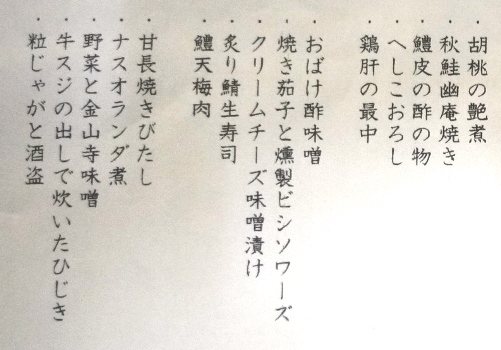 ・胡桃の艶煮
・秋鮭幽庵焼き
・鱧皮の酢の物
・へしこおろし
・鶏肝の最中
・おばけ酢味噌
・焼き茄子と燻製ビシソワーズ
・クリームチーズ味噌漬け
・炙り鯖生寿司
・鱧天梅肉
・甘長焼きびたし
・ナスオランダ煮
・野菜と金山寺味噌
・牛スジの出しで炊いたひじき
・粒じゃがと酒盗